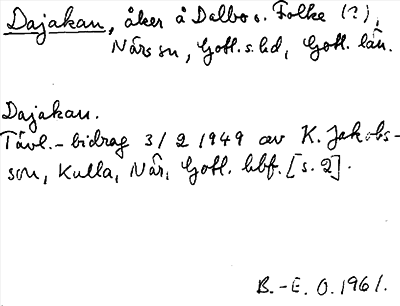 Dajakan, åker å Dalbo o. Folke (?),
När sn, Gotl. s. hd, Gotl. län.
Dajakan.
Tävl.-bidrag 3/2 1949 av K. Jakobs-
son, Kulla, När, Gotl. hbf. [s. 2].
B.-E. O. 1961.